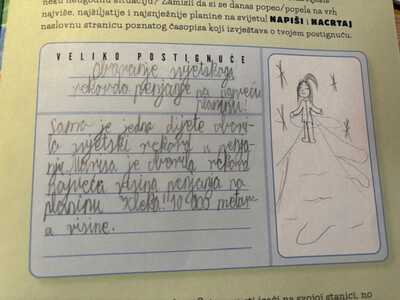 neku neugodnu situaciju? Zamisli da si se danas popeo/popela na vrh
najviše, najžiljatije i najsnježnije planine na svijetu! NAPIŠI i NACRTAJ
naslovnu stranicu poznatog časopisa koji izvještava o tvojem postignuću.
VELIKO POSTIGNUĆE
Obaranje svjetskoga
rekorda penjanje na najveću
planinu!
Sama je jedno dijete obori-
la svjetski rekord u penja-
nju. je oborila rekord
Najveća visina penjanja na
planinu 10 000 metar
a visine.
na svojoj stanici, no